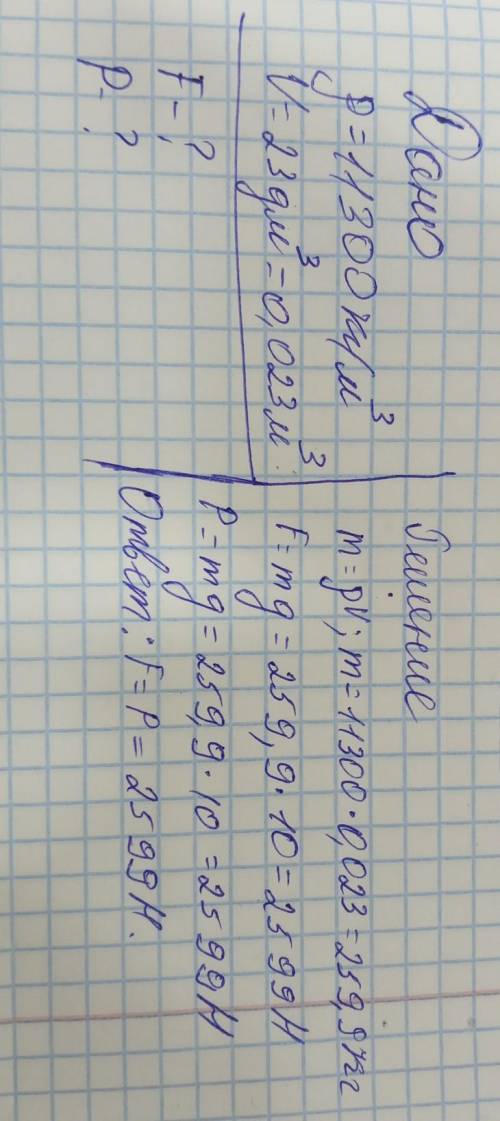 Дано
ρ = 11300 кг/м³
V = 23 дм³ = 0,023 м³
F - ?
P - ?
Решение
m = ρV; m = 11300 · 0,023 = 259,9 кг
F = mg = 259,9 · 10 = 2599 Н
P = mg = 259,9 · 10 = 2599 Н
Ответ: F = P = 2599 Н.